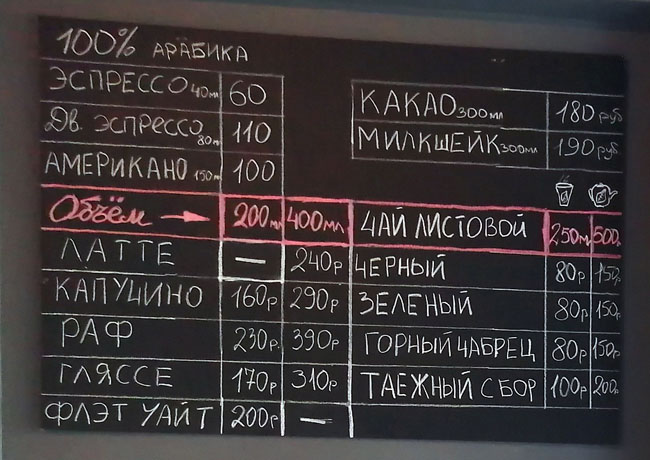 100% АРАБИКА
ЭСПРЕССО 40мл 60
Дв. ЭСПРЕССО 80м 110
АМЕРИКАНО 150мл 100
КАКАО 300мл 180 руб
МИЛКШЕЙК 300мл 190 руб.
Объём → 200мл 400мл
ЛАТТЕ — 240р
КАПУЧИНО 160р 290р
РАФ 230р. 390р
ГЛЯССЕ 170р 310р
ФЛЭТ УАЙТ 200р —
ЧАЙ ЛИСТОВОЙ 250м 500
ЧЕРНЫЙ 80р 150
ЗЕЛЕНЫЙ 80р 150р
ГОРНЫЙ ЧАБРЕЦ 80р 150р
ТАЕЖНЫЙ СБОР 100р 200р